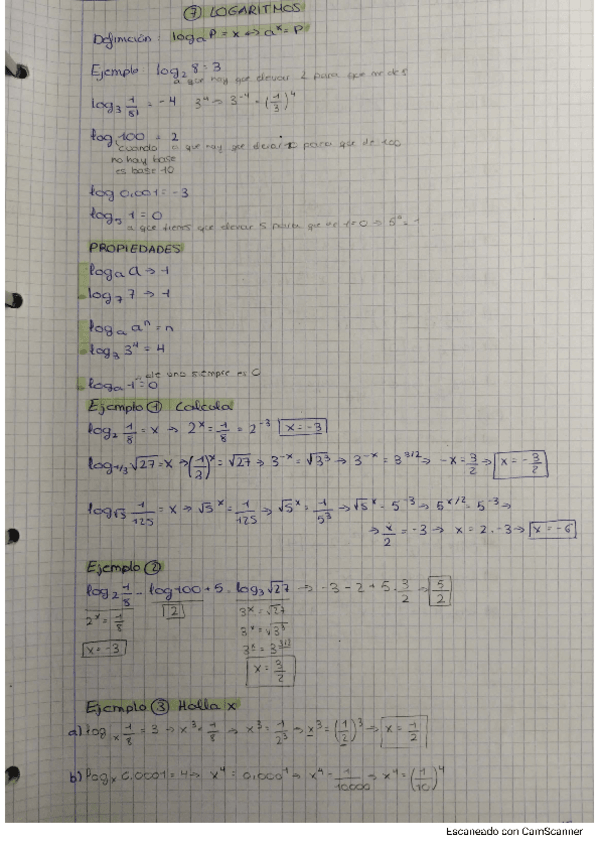 ⑦ LOGARITMOS
Definición: logₐ P = x ↔ aˣ = P
Ejemplo: log₂ 8 = 3
a que hay que elevar 2 para que de 8
log₃ 1/81 = -4 3⁴ → 3⁻⁴ = (1/3)⁴
log 100 = 2
cuando no hay base es base 10
a que hay que elevar 10 para que de 100
log 0,001 = -3
log₅ 1 = 0
a que tienes que elevar 5 para que de 1 = 0 → 5⁰ = 1
PROPIEDADES
logₐ a → 1
log₇ 7 → 1
logₐ aⁿ = n
log₃ 3⁴ = 4
logₐ 1 = 0 de uno siempre es 0
Ejemplo ① Calcula
log₂ 1/8 = x → 2ˣ = 1/8 = 2⁻³ x = -3
log₁/₃ √27 = x → (1/3)ˣ = √27 → 3⁻ˣ = √3³ → 3⁻ˣ = 3^3/2 → -x = 3/2 → x = -3/2
log√5 1/125 = x → √5ˣ = 1/125 → √5ˣ = 1/5³ → √5ˣ = 5⁻³ → 5^x/2 = 5⁻³ →
→ x/2 = -3 → x = 2 · -3 → x = -6
Ejemplo ②
log₂ 1/8 - log 100 + 5 · log₃ √27 → -3 - 2 + 5 · 3/2 → 5/2
2ˣ = 1/8 2 3ˣ = √27
3ˣ = √3³
x = -3 3ˣ = 3^3/2
x = 3/2
Ejemplo ③ Halla x
a) logₓ 1/8 = 3 → x³ = 1/8 → x³ = 1/2³ → x³ = (1/2)³ → x = 1/2
b) logₓ 0,0001 = 4 → x⁴ = 0,0001 → x⁴ = 1/10000 → x⁴ = (1/10)⁴
Escaneado con CamScanner